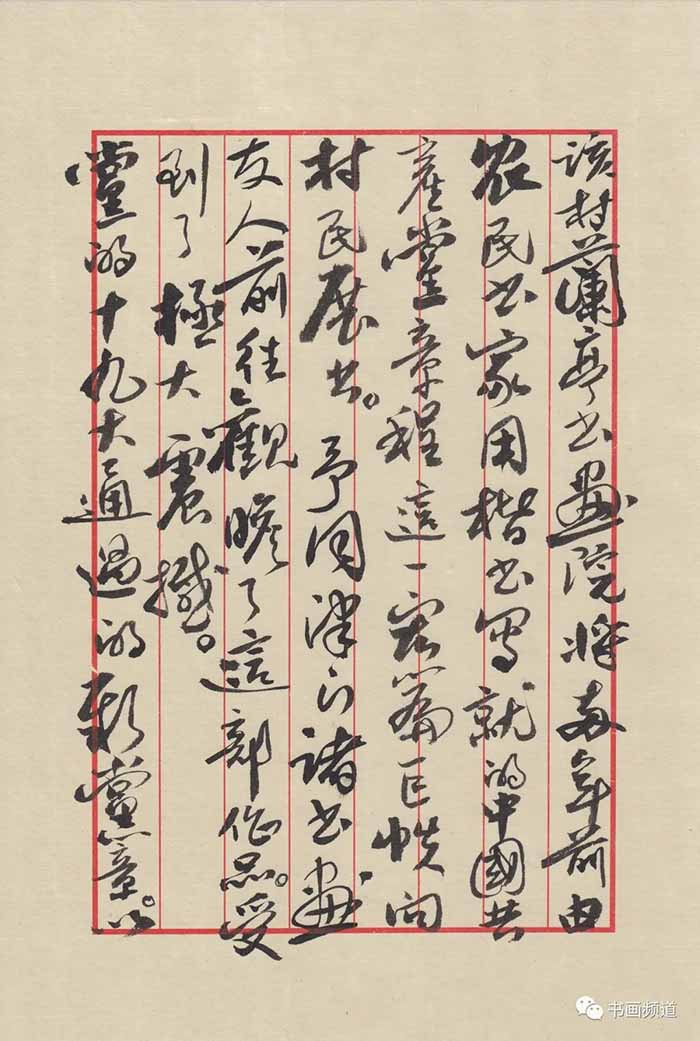 该村蘭亭书畫院将两年前由
农民书家用楷书写就的中國共
産黨章程這一宏篇巨帙向
村民展出。予同津门诸书畫
友人前往觀瞻了這部作品。受
到了極大震撼。
黨的十九大通過的新黨章。以
书画频道